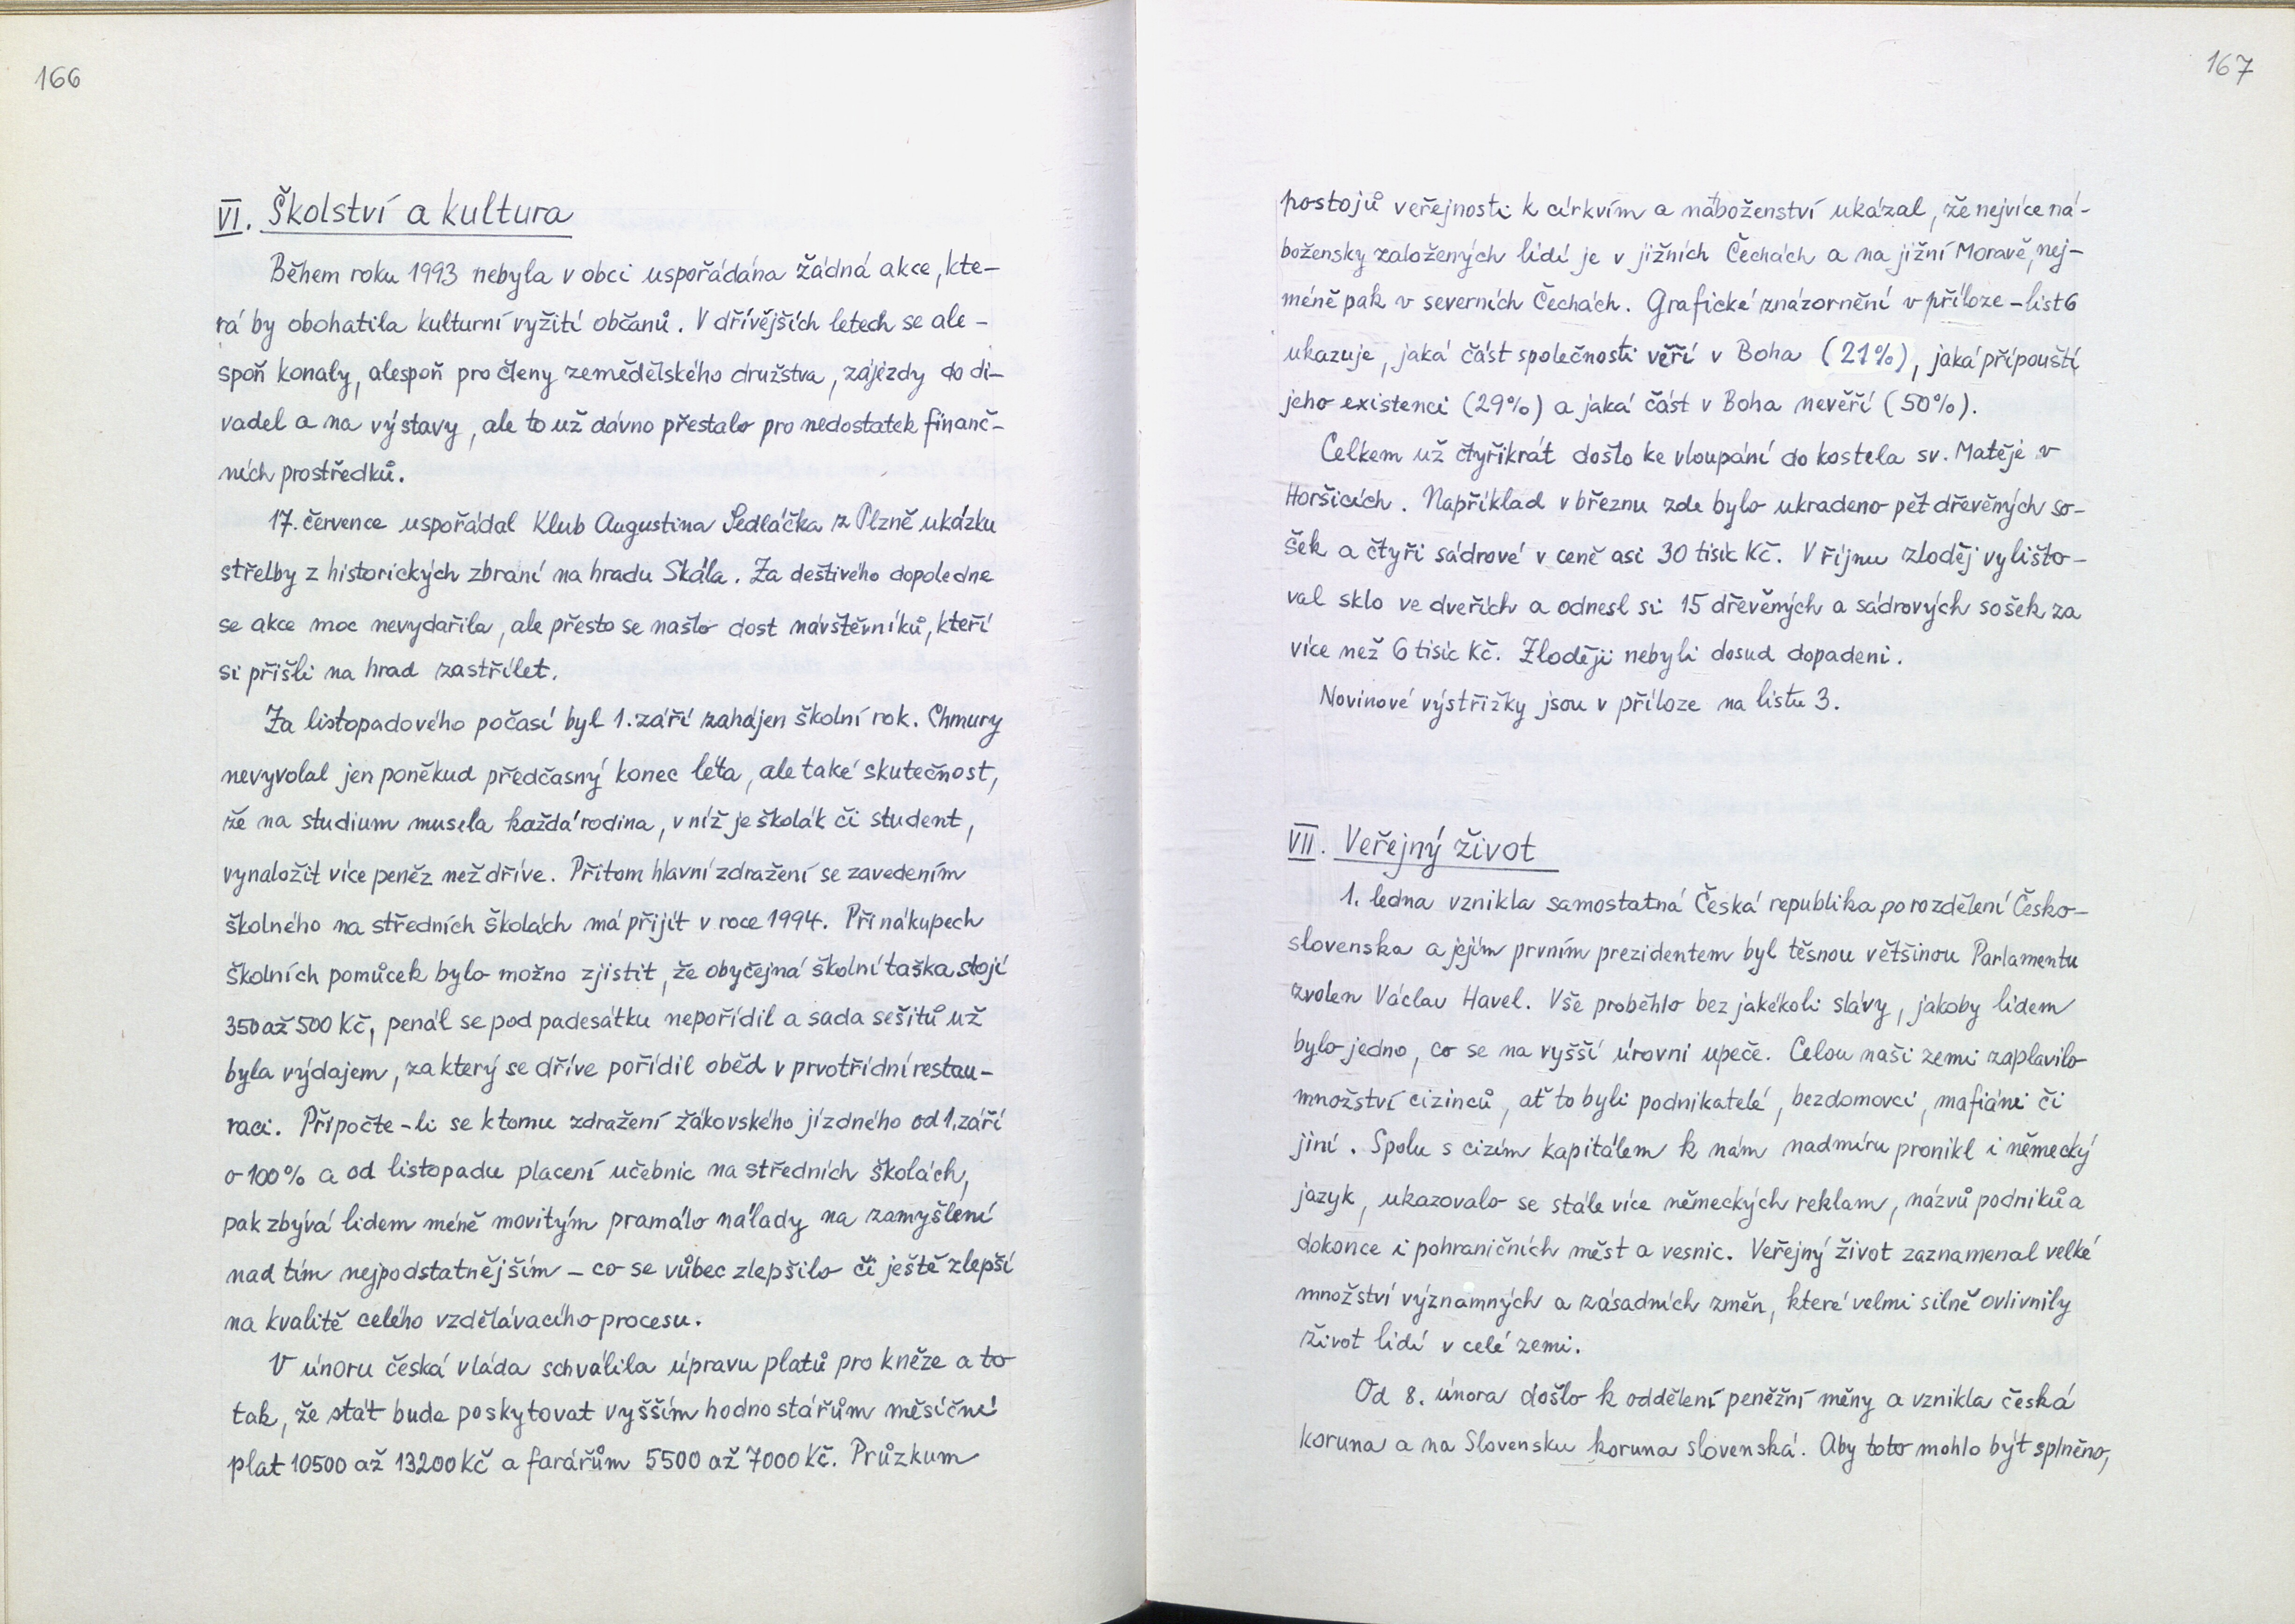 166
VI. Školství a kultura
Během roku 1993 nebyla v obci uspořádána žádná akce, kte-
rá by obohatila kulturní vyžití občanů. V dřívějších letech se ale-
spoň konaly, alespoň pro členy zemědělského družstva, zájezdy do di-
vadel a na výstavy, ale to už dávno přestalo pro nedostatek finanč-
ních prostředků.
17. července uspořádal Klub Augustina Sedláčka z Plzně ukázku
střelby z historických zbraní na hradu Skála. Za deštivého dopoledne
se akce moc nevydařila, ale přesto se našlo dost návštěvníků, kteří
si přišli na hrad zastřílet.
Za listopadového počasí byl 1. září zahájen školní rok. Chmury
nevyvolal jen poněkud předčasný konec léta, ale také skutečnost,
že na studium musela každá rodina, v níž je školák či student,
vynaložit více peněz než dříve. Přitom hlavní zdražení se zavedením
školného na středních školách má přijít v roce 1994. Při nákupech
školních pomůcek bylo možno zjistit, že obyčejná školní taška stojí
350 až 500 Kč, penál se pod padesátku nepořídil a sada sešitů už
byla výdajem, za který se dříve pořídil oběd v prvotřídní restau-
raci. Připočte-li se k tomu zdražení žákovského jízdného od 1. září
o 100% a od listopadu placení učebnic na středních školách,
pak zbývá lidem méně movitým pramálo nálady na zamyšlení
nad tím nejpodstatnějším – co se vůbec zlepšilo či ještě zlepší
na kvalitě celého vzdělávacího procesu.
V únoru česká vláda schválila úpravu platů pro kněze a to
tak, že stát bude poskytovat vyšším hodnostářům měsíční
plat 10500 až 13200 Kč a farářům 5500 až 7000 Kč. Průzkum
167
postojů veřejnosti k církvím a náboženství ukázal, že nejvíce ná-
božensky založených lidí je v jižních Čechách a na jižní Moravě, nej-
méně pak v severních Čechách. Grafické znázornění v příloze – list 6
ukazuje, jaká část společnosti věří v Boha (21%), jaká připouští
jeho existenci (29%) a jaká část v Boha nevěří (50%).
Celkem už čtyřikrát došlo ke vloupání do kostela sv. Matěje v
Horšicích. Například v březnu zde bylo ukradeno pět dřevěných so-
šek a čtyři sádrové v ceně asi 30 tisíc Kč. V říjnu zloděj vylišto-
val sklo ve dveřích a odnesl si 15 dřevěných a sádrových sošek za
více než 6 tisíc Kč. Zloději nebyli dosud dopadeni.
Novinové výstřižky jsou v příloze na listu 3.
VII. Veřejný život
1. ledna vznikla samostatná Česká republika po rozdělení Česko-
slovenska a jejím prvním prezidentem byl těsnou většinou Parlamentu
zvolen Václav Havel. Vše proběhlo bez jakékoli slávy, jakoby lidem
bylo jedno, co se na vyšší úrovni upeče. Celou naši zemi zaplavilo
množství cizinců, ať to byli podnikatelé, bezdomovci, mafiáni či
jiní. Spolu s cizím kapitálem k nám nadmíru pronikl i německý
jazyk, ukazovalo se stále více německých reklam, názvů podniků a
dokonce i pohraničních měst a vesnic. Veřejný život zaznamenal velké
množství významných a zásadních změn, které velmi silně ovlivnily
život lidí v celé zemi.
Od 8. února došlo k oddělení peněžní měny a vznikla česká
koruna a na Slovensku koruna slovenská. Aby toto mohlo být splněno,